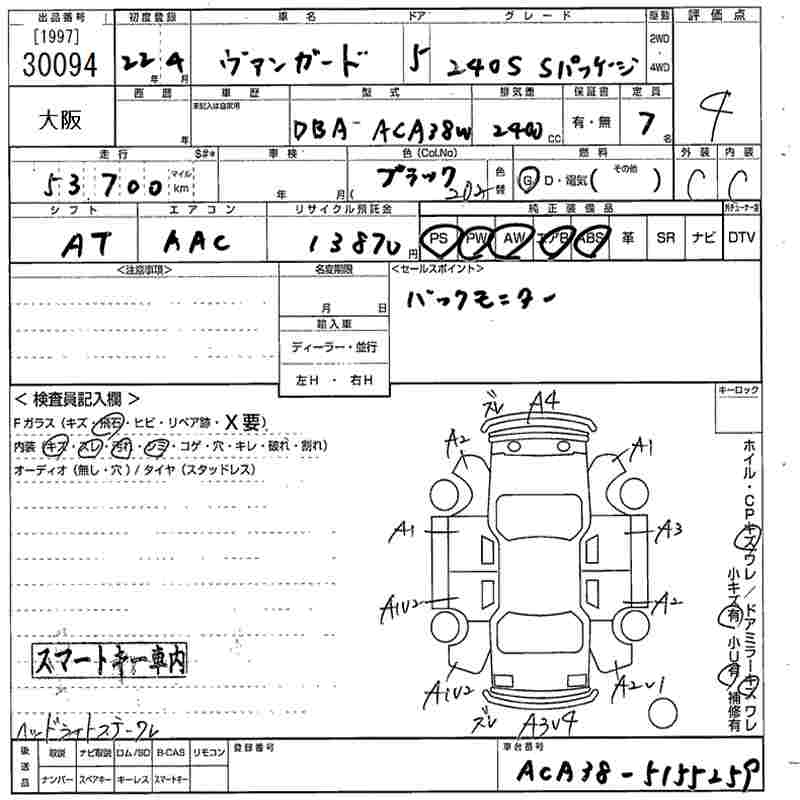 出品番号 初度登録 車名 ドア グレード 駆動 評価点
[1997] 30094 22年 4月 ヴァンガード 5 240S Sパッケージ 2WD・4WD 4
大阪 西暦 年 車歴 未記入は自家用 型式 排気量 保証書 定員
DBA-ACA38W 2400cc 有・無 7名
走行 S#* 車検 色(Col.No) 燃料 外装 内装
53,700 マイル km 年 月( ブラック 202) 色替 G・D・電気( その他 ) C C
シフト エアコン リサイクル預託金 純正装備品
AT AAC 13870円 PS PW AW エアB ABS 革 SR ナビ DTV
<注意事項> 名変期限 <セールスポイント>
月 日 バックモニター
輸入車
ディーラー・並行
左H ・ 右H
< 検査員記入欄 > キーロック
Fガラス (キズ・飛石・ヒビ・リペア跡・X要)
内装 (キズ・スレ・汚れ・シミ・コゲ・穴・キレ・破れ・割れ)
オーディオ (無し・穴) / タイヤ (スタッドレス)
ズレ A4
A2 A1
A1 A3
A1U2 A2
A1U2 A2U1
ズレ A3U4
ホイル・CPキズワレ / ドアミラーキズワレ
小キズ有 小U有 補修有
スマートキー車内
ヘッドライトステークレ
後送品 取説 ナビ取説 ロム/SD B-CAS リモコン 登録番号 車台番号
ナンバー スペアキー キーレス スマートキー ACA38-5155259